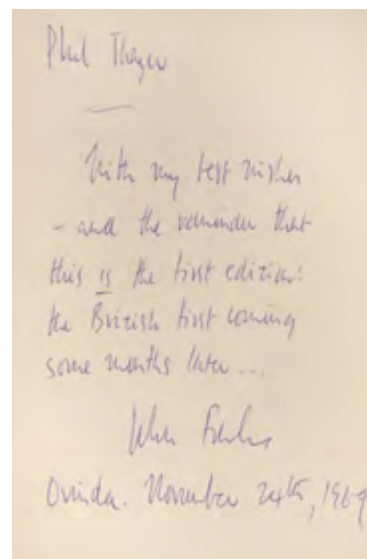 Phil Thayer
With my best wishes
– and the reminder that
this is the first edition:
the British first coming
some months later...
John Fowles
Orinda. November 24th, 1969